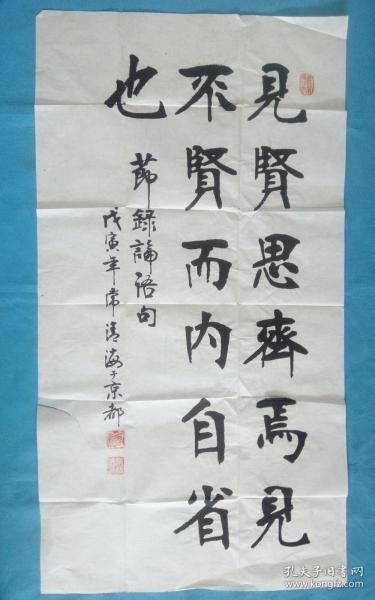 見賢思齊焉見
不賢而内自省
也
節録論语句
戊寅年常清海于京都
孔夫子旧书网
www.kongfz.com